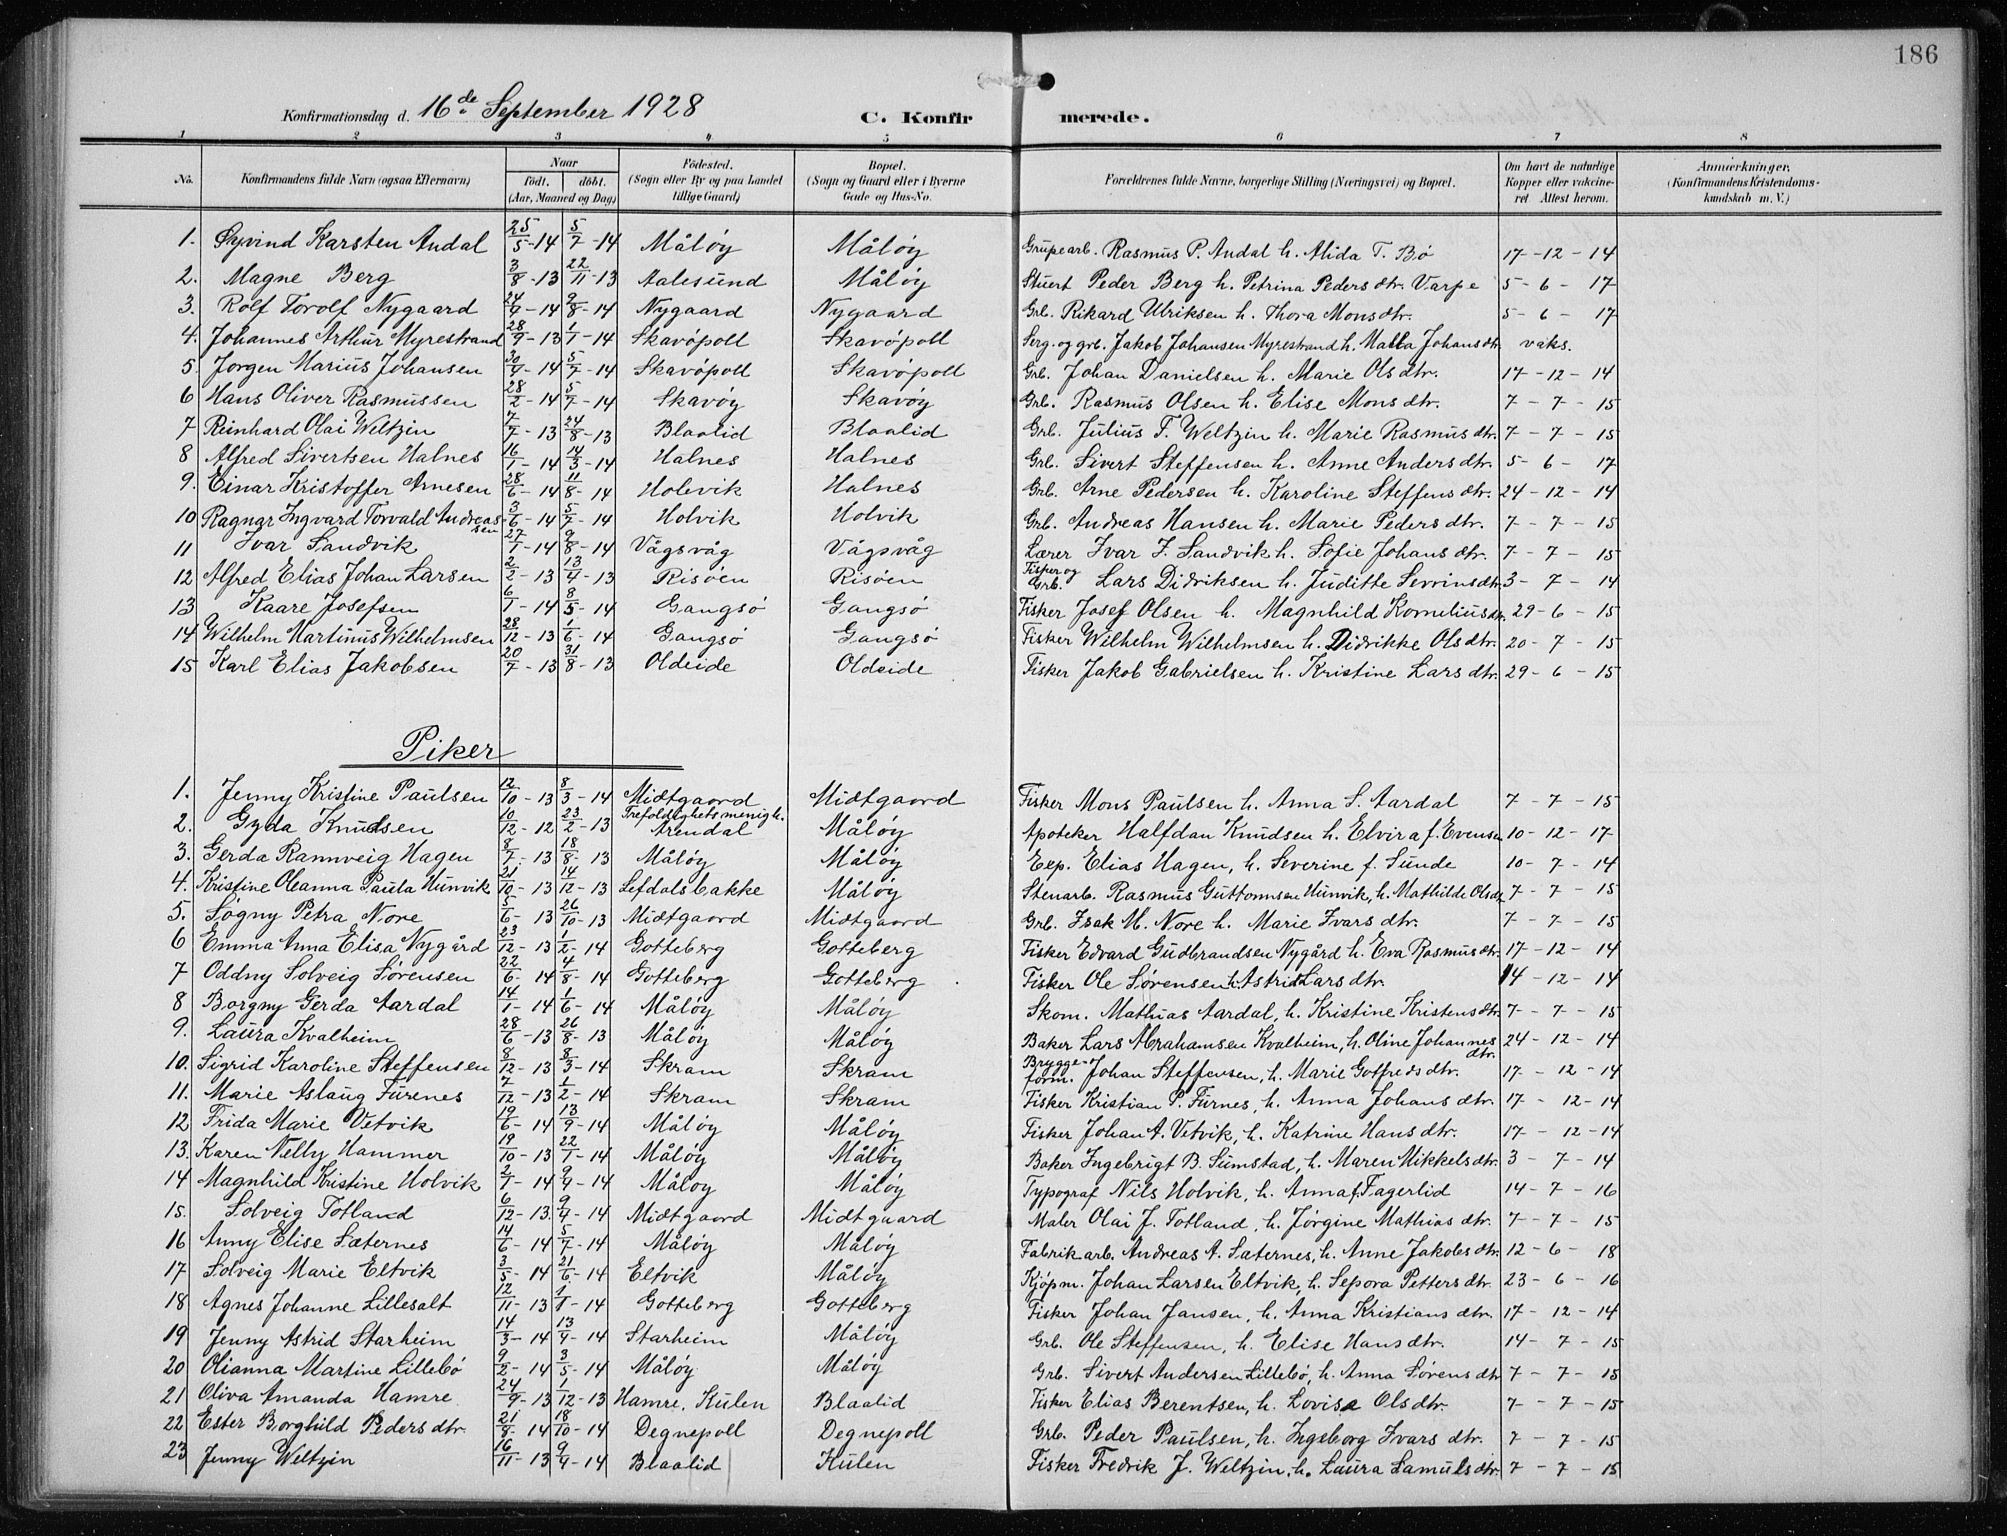 186
Konfirmationsdag d. 16de September 1928 C. Konfirmerede.
1 2 3 4 5 6 7 8
No. Konfirmandens fulde Navn (ogsaa Efternavn) Naar født. døbt. (Aar, Maaned og Dag) Fødested. (Sogn eller By og paa Landet tillige Gaard) Bopæl. (Sogn og Gaard eller i Byerne Gade og Hus-No. Forældrenes fulde Navne, borgerlige Stilling (Næringsvei) og Bopæl. Om havt de naturlige Kopper eller vakcineret Attest herom. Anmærkninger. (Konfirmandens Kristendomskundskab m. V.)
1. Øyvind Karsten Andal 25/5-14 5/7-14 Måløy Måløy Grupearb. Rasmus P. Andal h. Alida T. Bø 17-12-14
2. Magne Berg 3/8-13 22/11-13 Aalesund Måløy Stuert Peder Berg h. Petrina Pedersdtr. Varpe 5-6-17
3. Rolf Torolf Nygaard 24/4-14 9/8-14 Nygaard Nygaard Grb. Rikard Ulriksen h. Thora Monsdtr. 5-6-17
4. Johannes Arthur Myrestrand 28/9-13 1/1-14 Skavøpoll Skavøpoll Serg. og grb. Jakob Johansen Myrestrand h. Matta Johansdtr. vaks.
5. Jørgen Marius Johansen 30/4-14 5/7-14 Skavøpoll Skavøpoll Grb. Johan Danielsen h. Marie Olsdtr. 17-12-14
6 Hans Oliver Rasmussen 28/2-14 5/7-14 Skavøy Skavøy Grb. Rasmus Olsen h. Elise Monsdtr. 7-7-15
7 Reinhard Olai Weltzin 7/7-13 24/8-13 Blaalid Blaalid Grb. Julius F. Weltzin h. Marie Rasmusdtr. 7-7-15
8 Alfred Sivertsen Halnes 16/1-14 14/3-14 Halnes Halnes Grb. Sivert Steffensen h. Anne Andersdtr. 5-6-17
9. Einar Kristoffer Arnesen 28/6-14 11/8-14 Holevik Halnes Grb. Arne Pedersen h. Karoline Steffensdtr. 24-12-14
10 Ragnar Ingvard Torvald Andreassen 3/6-14 5/7-14 Holvik Holvik Grb. Andreas Hansen h. Marie Pedersdtr. 7-7-15
11 Ivar Sandvik 27/1-14 9/8-14 Vågsvåg Vågsvåg Lærer Ivar J. Sandvik h. Sofie Johansdtr. 7-7-15
12 Alfred Elias Johan Larsen 2/2-13 13/4-13 Risøen Risøen Fisker og Grb. Lars Didriksen h. Juditte Sevrinsdtr. 3-7-14
13 Kaare Josefsen 6/1-14 8/5-14 Gangsø Gangsø Fisker Josef Olsen h. Magnhild Korneliusdtr. 29-6-15
14 Wilhelm Martinus Wilhelmsen 28/12-13 1/6-14 Gangsø Gangsø Fisker Wilhelm Wilhelmsen h. Didrikke Olsdtr. 20-7-15
15 Karl Elias Jakobsen 20/7-13 31/8-13 Oldeide Oldeide Fisker Jakob Gabrielsen h. Kristine Larsdtr. 29-6-15
Piker
1. Jenny Kristine Paulsen 12/10-13 8/3-14 Midtgaard Midtgaard Fisker Mons Paulsen h. Anna S. Aardal 7-7-15
2. Gyda Knudsen 10/12-12 23/2-13 Trefoldighetsmenigh. Arendal Måløy Apoteker Halfdan Knudsen h. Elvira f. Evensen 10-12-17
3. Gerda Rannveig Hagen 8/7-13 18/8-13 Måløy Måløy Exp. Elias Hagen, h. Severine f. Sunde 10-7-14
4. Kristine Oleanna Paula Hunvik 21/10-13 14/12-13 Lefdalsbakke Måløy Stenarb. Rasmus Guttormsen Hunvik, h. Mathilde Olsdtr. 7-7-15
5. Søgny Petra Nore 5/6-13 26/10-13 Midtgaard Midtgaard Grb. Isak M. Nore h. Marie Ivarsdtr. 7-7-15
6 Emma Anna Elisa Nygård 23/12-13 1/2-14 Gotteberg Gotteberg Fisker Edvard Gudbrandsen Nygård h. Eva Rasmusdtr. 17-12-14
7 Oddny Solveig Sørensen 22/6-14 4/8-14 Gotteberg Gotteberg Fisker Ole Sørensen h. Astrid Larsdtr. 14-12-14
8 Borgny Gerda Aardal 14/1-14 1/6-14 Måløy Måløy Skom. Mathias Aardal, h. Kristine Kristensdtr. 7-7-15
9. Laura Kvalheim 28/6-13 26/8-13 Måløy Måløy Baker Lars Abrahamsen Kvalheim, h. Oline Johannesdtr. 24-12-14
10. Sigrid Karoline Steffensen 8/12-13 8/3-14 Skram Skram Bryggeform. Johan Steffensen, h. Marie Gotfredsdtr. 17-12-14
11. Marie Aslaug Furenes 7/12-13 1/2-14 Skram Skram Fisker Kristian P. Furnes, h. Anna Johansdtr. 17-12-14
12 Frida Marie Vetvik 19/6-14 13/9-14 Måløy Måløy Fisker Johan A. Vetvik, h. Katrine Hansdtr. 17-12-14
13. Karen Nelly Hammer 19/10-13 22/1-14 Måløy Måløy Baker Ingebrigt B. Sumstad, h. Maren Mikkelsdtr. 3-7-14
14 Magnhild Kristine Holvik 2/1-14 9/4-14 Måløy Måløy Typograf Nils Holvik, h. Anna f. Fagerlid 14-7-16
15. Solveig Totland 6/12-13. 9/4-14 Midtgaard Midtgaard Maler Olai J. Totland, h. Jørgine Mathiasdtr. 7-7-15
16 Anny Elise Sæternes 14/6-14 5/7-14 Måløy Måløy Fabrikarb. Andreas A. Sæternes, h. Anne Jakobsdtr. 12-6-18
17 Solveig Marie Eltvik 3/5-14 21/6-14 Eltvik Måløy Kjøpm. Johan Larsen Eltvik, h. Sepora Pettersdtr. 23-6-16
18 Agnes Johanne Lillesalt 12/11-13 1/1-14 Gotteberg Gotteberg Fisker Johan Jansen, h. Anna Kristiansdtr. 17-12-14
19 Jenny Astrid Starheim 14/3-14 13/4-14 Starheim Måløy Grb. Ole Steffensen, h. Elise Hansdtr. 14-7-15
20 Olianna Martine Lillebø 9/2-14 3/5-14 Måløy Måløy Grb. Sivert Andersen Lillebø, h. Anna Sørensdtr 7-7-15
21 Oliva Amanda Hamre 24/9-13 1/12-13 Hamre, Hulen Blaalid Fisker Elias Berentsen, h. Lovise Olsdtr. 7-7-15
22 Ester Borghild Pedersdtr. 21/8-14 18/10-14 Degnepoll Degnepoll Grb. Peder Paulsen, h. Ingeborg Ivarsdtr. 7-7-15
23 Jenny Weltzin 16/11-13 9/4-14 Blaalid Hulen Fisker Fredrik J. Weltzin, h. Laura Samulsdtr. 7-7-15